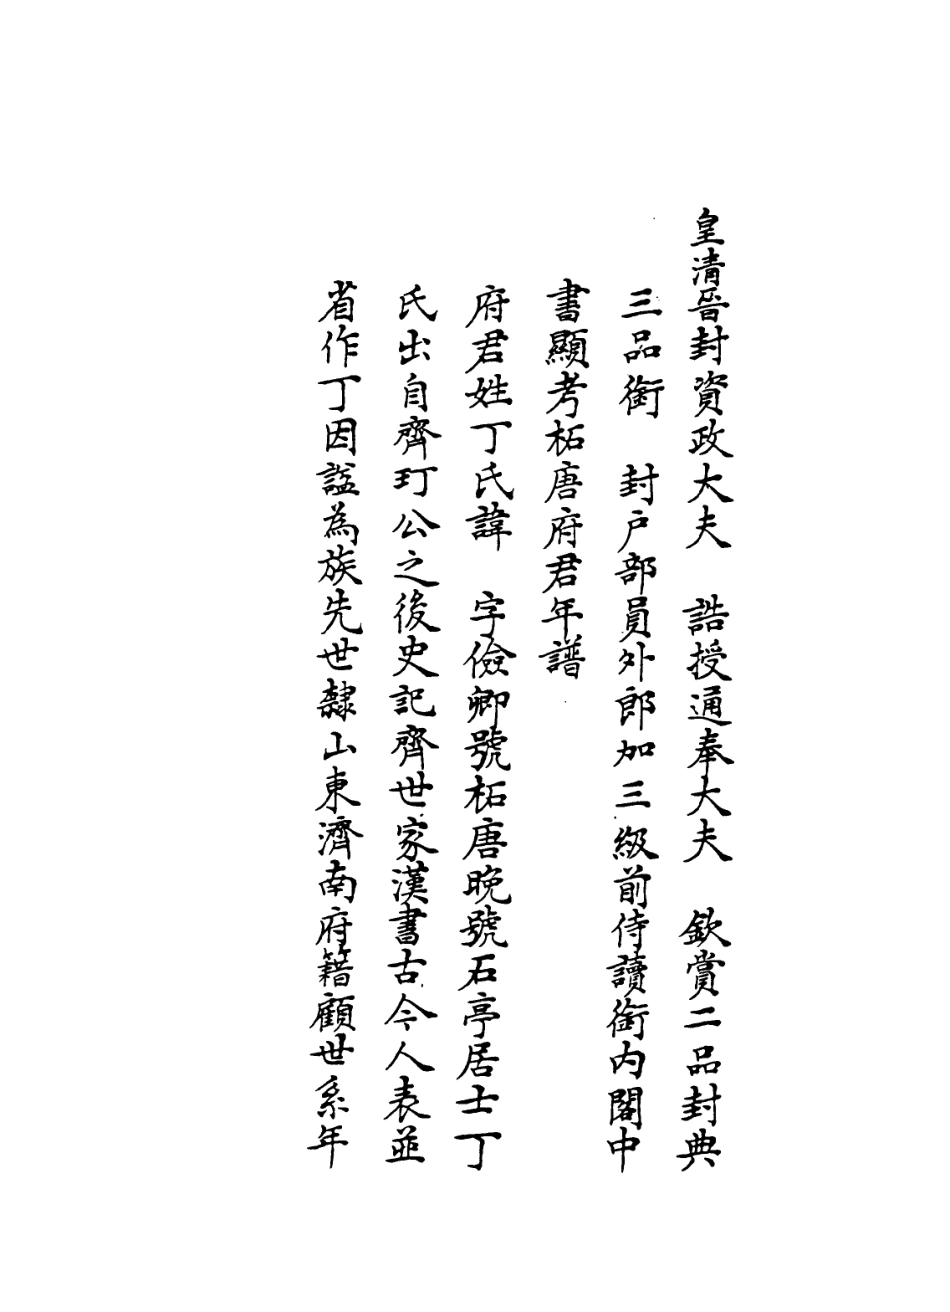 皇清晉封資政大夫　誥授通奉大夫　欽賞二品封典
三品銜　封户部員外郎加三級前侍讀銜内閣中
書顯考柘唐府君年譜
府君姓丁氏諱　字儉卿號柘唐晚號石亭居士丁
氏出自齊玎公之後史記齊世家漢書古今人表並
省作丁因諡為族先世隸山東濟南府籍顧世系年